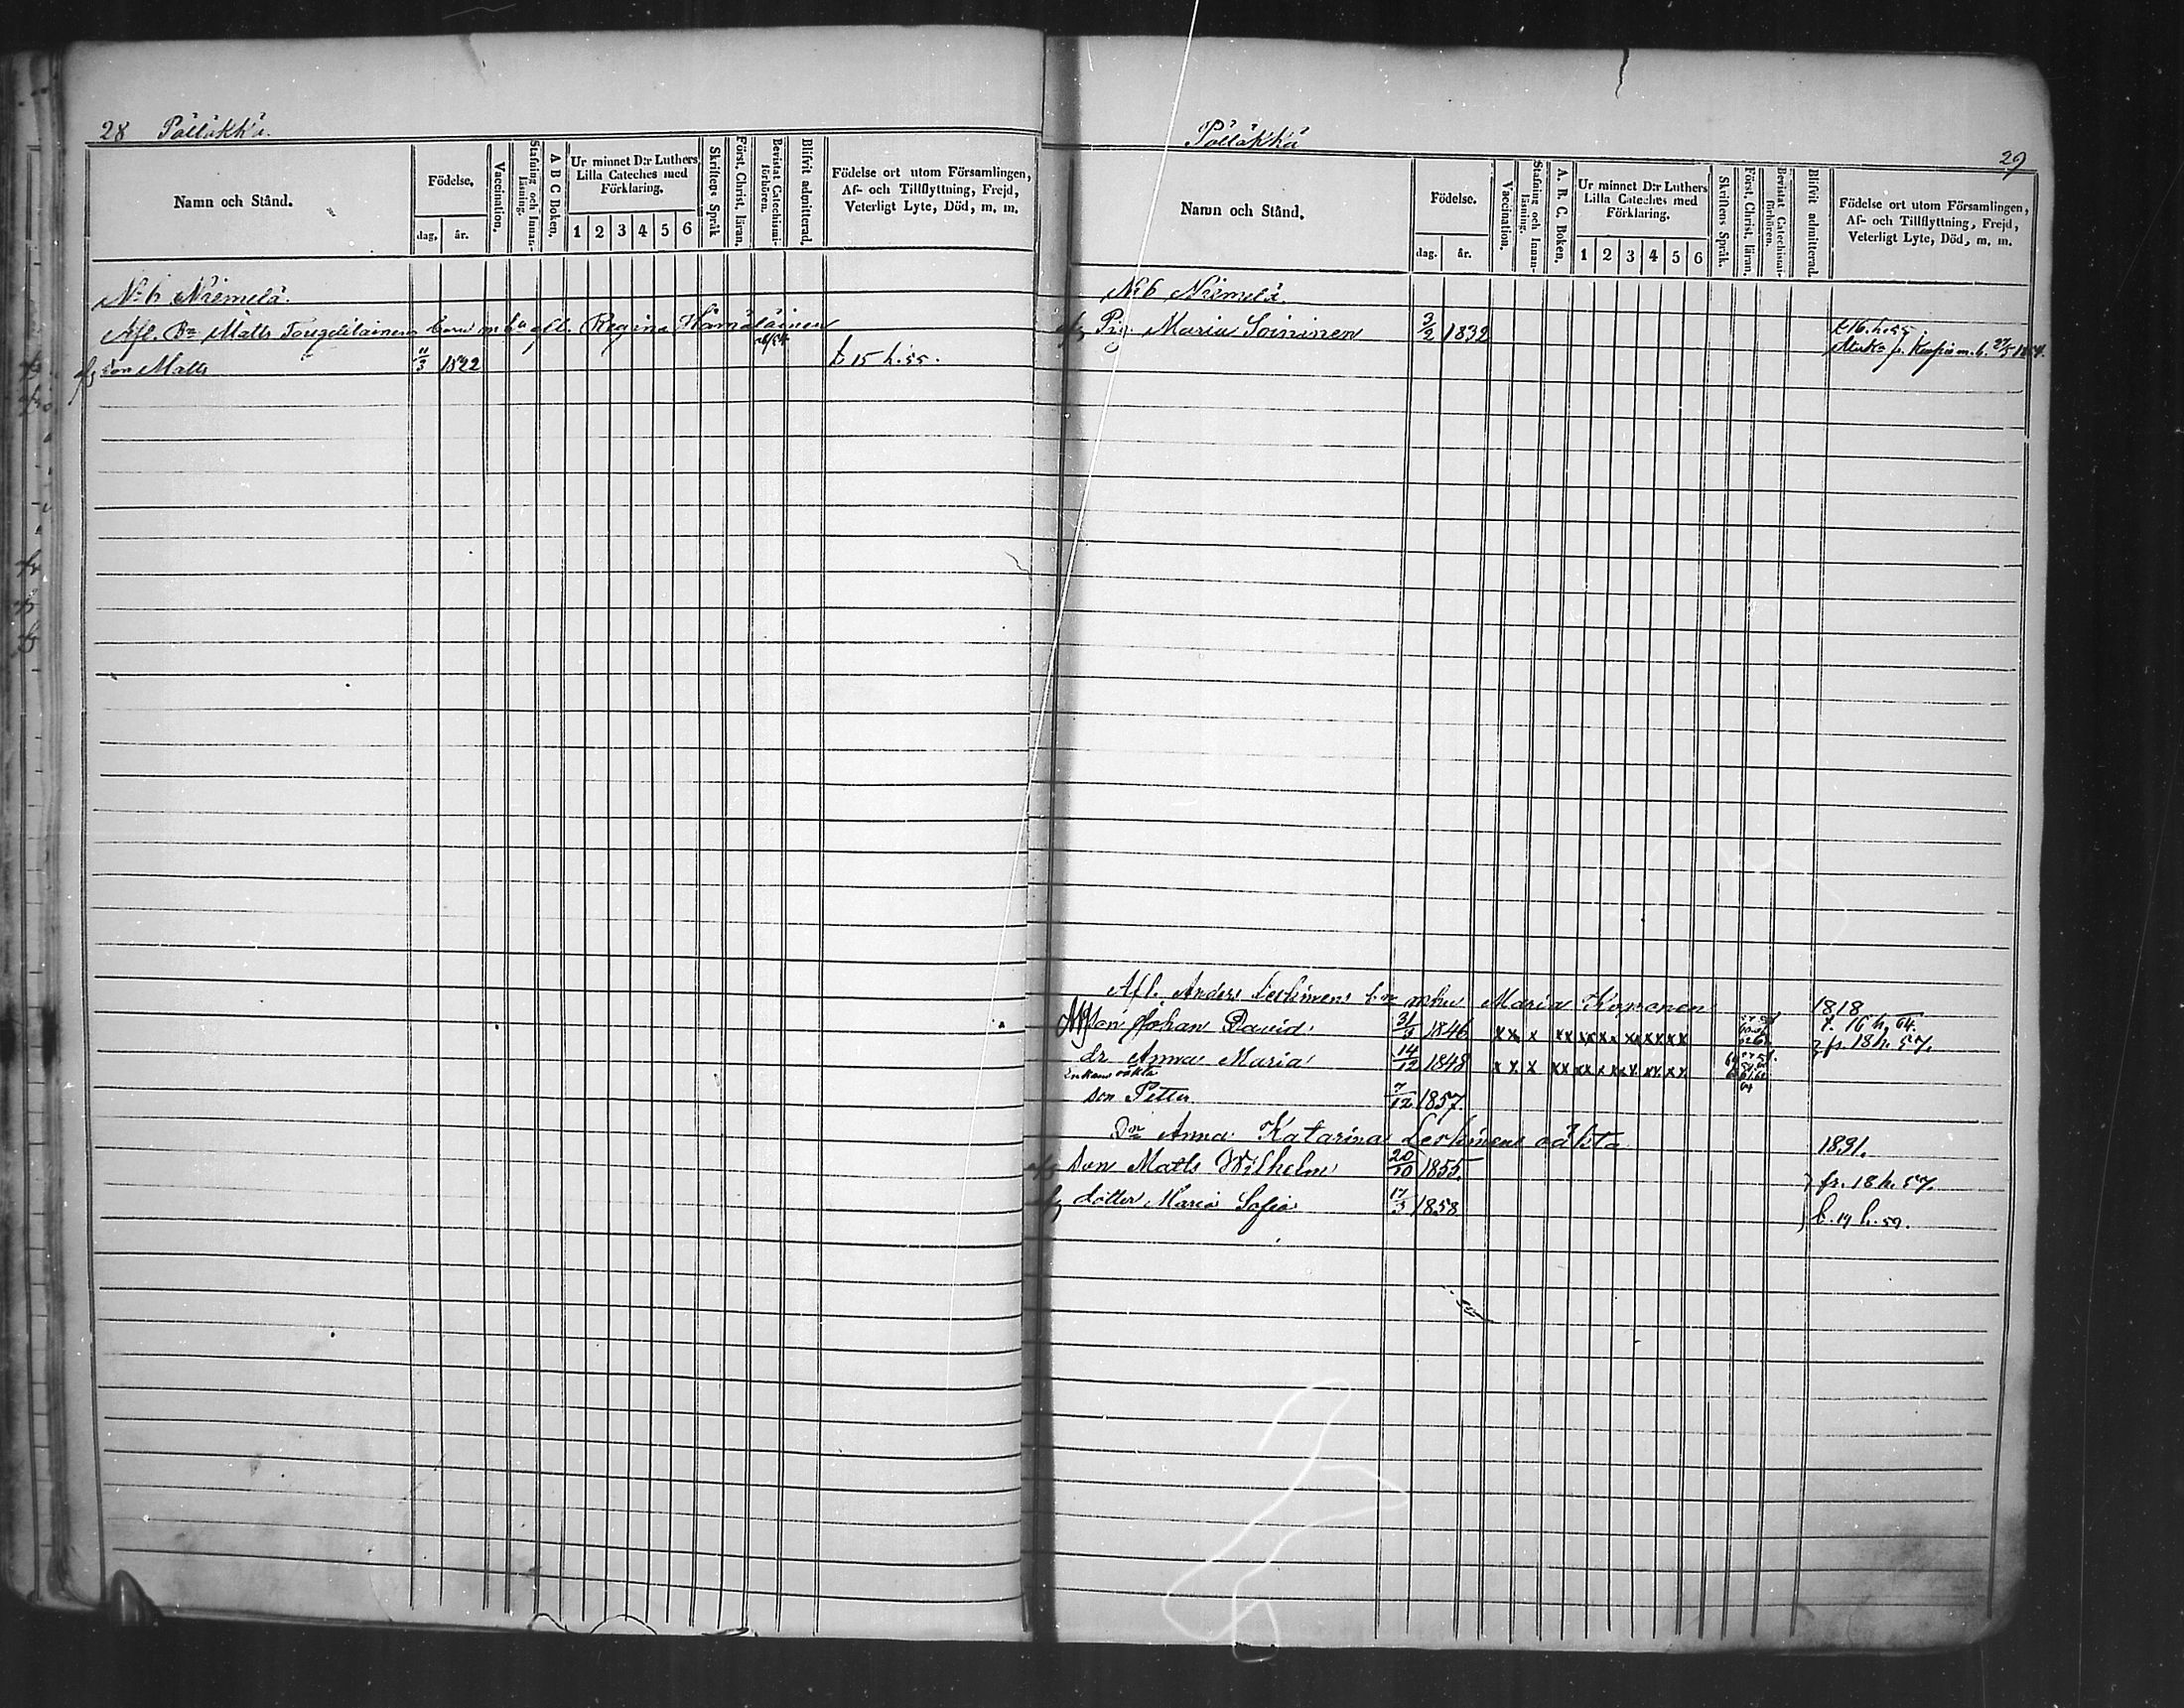 28 Pöläkkä.
Namn och Stånd.
Födelse.
dag. år.
Vaccination.
Stafning och Innanläsning.
A B C Boken.
Ur minnet D:r Luthers Lilla Cateches med Förklaring.
1 2 3 4 5 6
Skriftens Språk
Först. Christ. läran.
Bevistat Catechismiförhören.
Blifvit admitterad.
Födelse ort utom Församlingen, Af- och Tillflyttning, Frejd, Veterligt Lyte, Död, m. m.
N:o 6 Niemelä.
Afl. Matts barn m. h. Regina Hämäläinen
son Matts 11/3 1822 t 15 h. 55.
Pöläkkä
29
Namn och Stånd.
Födelse.
dag. år.
Vaccination.
Stafning och Innanläsning.
A. B. C. Boken.
Ur minnet D:r Luthers Lilla Cateches med Förklaring.
1 2 3 4 5 6
Skriftens Språk.
Först. Christ. läran.
Bevistat Catechismiförhören.
Blifvit admitterad.
Födelse ort utom Församlingen, Af- och Tillflyttning, Frejd, Veterligt Lyte, Död, m. m.
N:o 6 Niemelä.
Pig. Maria Soininen 3/2 1832 t 16. h. 55.
fr. Kuopio m. b. 1854.
Afl. Anders Leskinens mhu Maria Kononen 1818
son Johan David 31/3 1846 t. 16 h. 64.
fr. 18 h. 57.
dr Anna Maria 14/12 1848
Enkans oäkta
son Petter 7/12 1857.
Anna Katarina Leskinens oäkta 1831.
son Matts Wilhelm 20/10 1855. fr. 18 h. 57.
dotter Maria Sofia 17/3 1858 t. 19 h. 59.